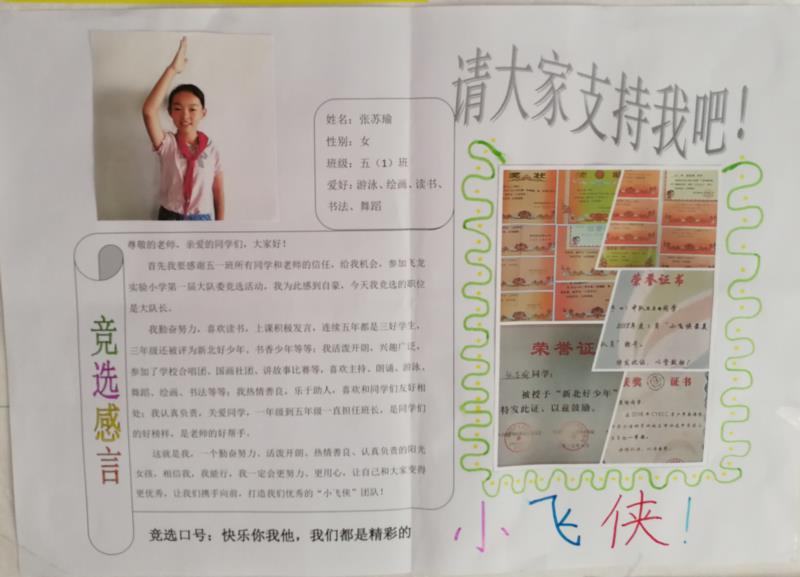 请大家支持我吧！
姓名：张苏瑜
性别：女
班级：五（1）班
爱好：游泳、绘画、读书、
书法、舞蹈
竞选感言
尊敬的老师、亲爱的同学们，大家好！
首先我要感谢五一班所有同学和老师的信任，给我机会，参加飞龙
实验小学第一届大队委竞选活动。我为此感到自豪，今天我竞选的职位
是大队长。
我勤奋努力，喜欢读书，上课积极发言，连续五年都是三好学生，
三年级还被评为新北好少年、书香少年等等；我活泼开朗，兴趣广泛，
参加了学校合唱团、国画社团、讲故事比赛等，喜欢主持、朗诵、游泳、
舞蹈、绘画、书法等等；我热情善良，乐于助人，喜欢和同学们友好相
处；我认真负责，关爱同学，一年级到五年级一直担任班长，是同学们
的好榜样，是老师的好帮手。
这就是我，一个勤奋努力、活泼开朗、热情善良、认真负责的阳光
女孩，相信我，我能行，我一定会更努力、更用心，让自己和大家变得
更优秀，让我们携手向前，打造我们优秀的“小飞侠”团队！
竞选口号：快乐你我他，我们都是精彩的
小飞侠！
奖状
荣誉证书
荣誉证
同学：
被授予“新北好少年”
特发此证，以兹鼓励。
获奖证书